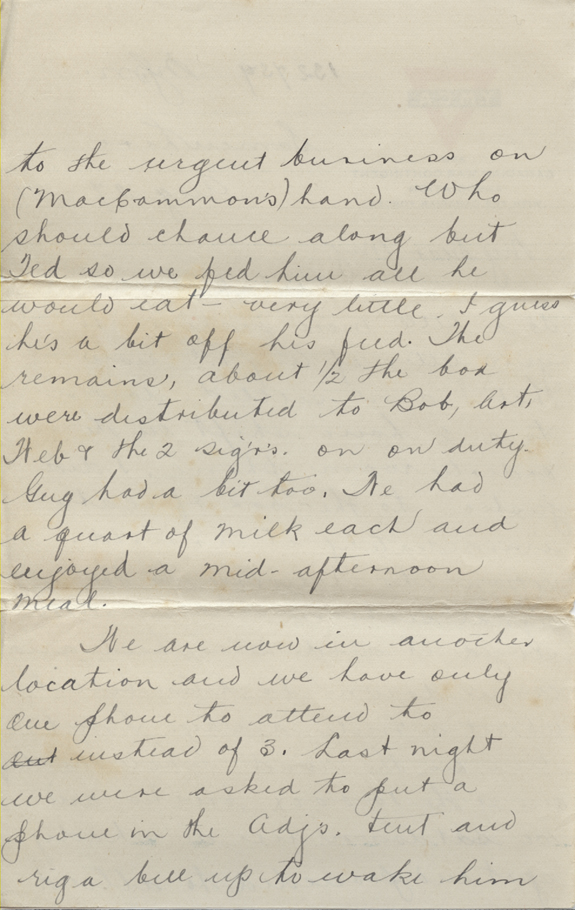 to the urgent business on
(MacCammon's) hand. Who
should chance along but
Ted so we fed him all he
would eat - very little. I guess
he's a bit off his feed. The
remains, about 1/2 the box
were distributed to Bob, Art,
Web & the 2 sig'rs. on on duty.
Gug had a bit too. We had
a quart of milk each and
enjoyed a mid-afternoon
meal.
We are now in another
location and we have only
one phone to attend to
out instead of 3. Last night
we were asked to put a
phone in the Adjs. tent and
rig a bell up to wake him